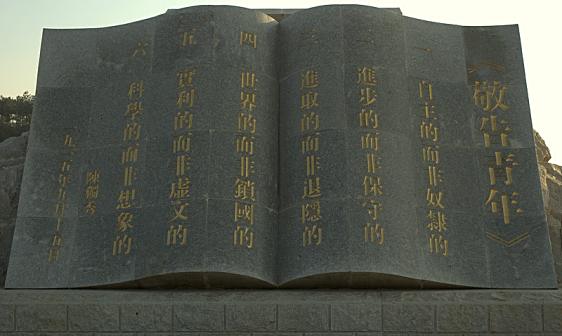 《敬告青年》
一 自主的而非奴隸的
二 進步的而非保守的
三 進取的而非退隱的
四 世界的而非鎖國的
五 實利的而非虛文的
六 科學的而非想象的
陳獨秀
一九一五年九月十五日